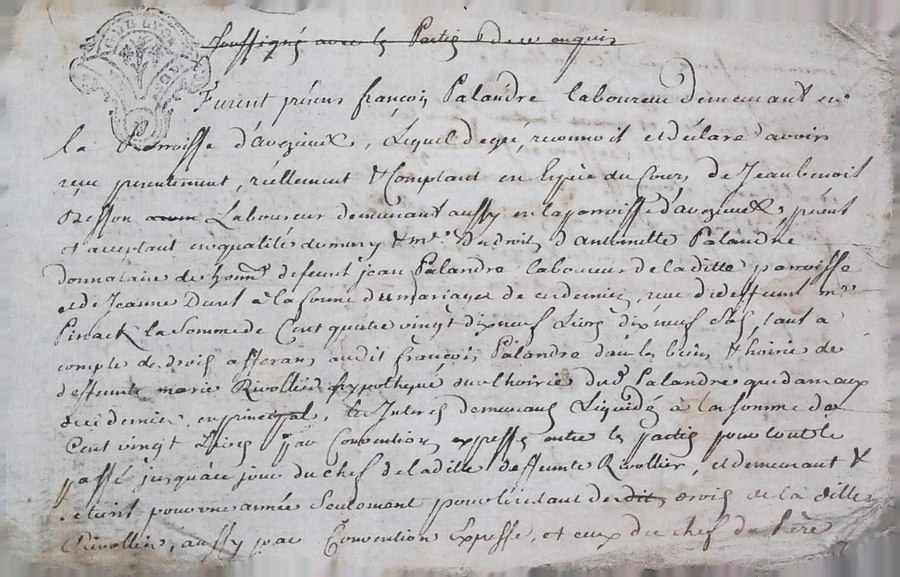 soussigné avec les parties de ce enquis
Furent présens françois Palandre laboureur demeurant en
la Parroisse d'aveizieux, Lequel de gré, reconnoit et déclare d'avoir
reçu présentement, réellement & Comptant en Espèce du Cours de Jean benoit
Besson Laboureur demeurant aussy en la parroisse d'aveizieux, présent
et acceptant en qualité de mary & me des droits d'antoinette Palandre
donnataire de feu défeunt jean Palandre laboureur de la ditte parroisse
et de Jeanne Duret à la forme du mariage de ce dernier, reçu de deffeunt me
Pinack la Somme de Cent quatre vingt dix neuf Livres dix neuf sols, tant a
compte de droits afferans audit françois Palandre dans les biens & hoirie de
deffeunte marie Rivollier hypothéqué sur l'hoirie Palandre que dam aux
dernier, en principal, les Interets demeurans Liquidés à la somme de
Cent vingt Livres par Convention expresse entre les parties pour tout le
passé jusqu'à ce jour du chef de la ditte deffeunte Rivollier, et demeurant &
étant pour une année Seulement pour le restant des droits de la ditte
Rivollier, aussy par Convention Expresse, et ceux du chef du Père